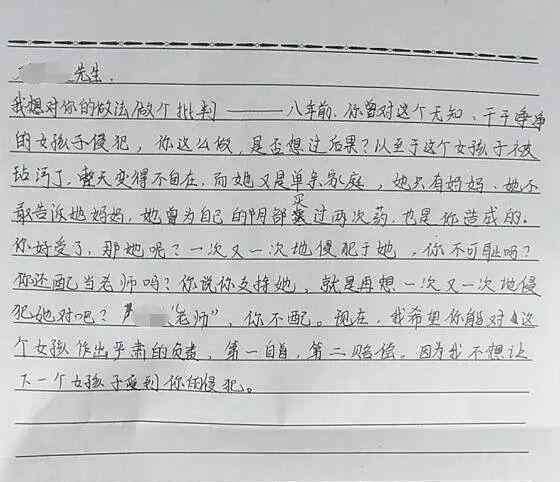 先生.
我想对你的做法做个批判———八年前.你曾对这个无知、干干净净
的女孩子侵犯，你这么做，是否想过后果？以至于这个女孩子被
玷污了，整天变得不自在，而她又是单亲家庭，她只有妈妈、她不
敢告诉她妈妈，她曾为自己的阴部买过两次药，也是你造成的.
你好受了，那她呢？一次又一次地侵犯于她，你不可耻吗？
你还配当老师吗？你说你支持她，就是再想一次又一次地侵
犯她对吧？“ 老师”，你不配。现在，我希望你能对这
个女孩作出严肃的负责，第一自首，第二赔偿，因为我不想让
下一个女孩子受到你的侵犯。